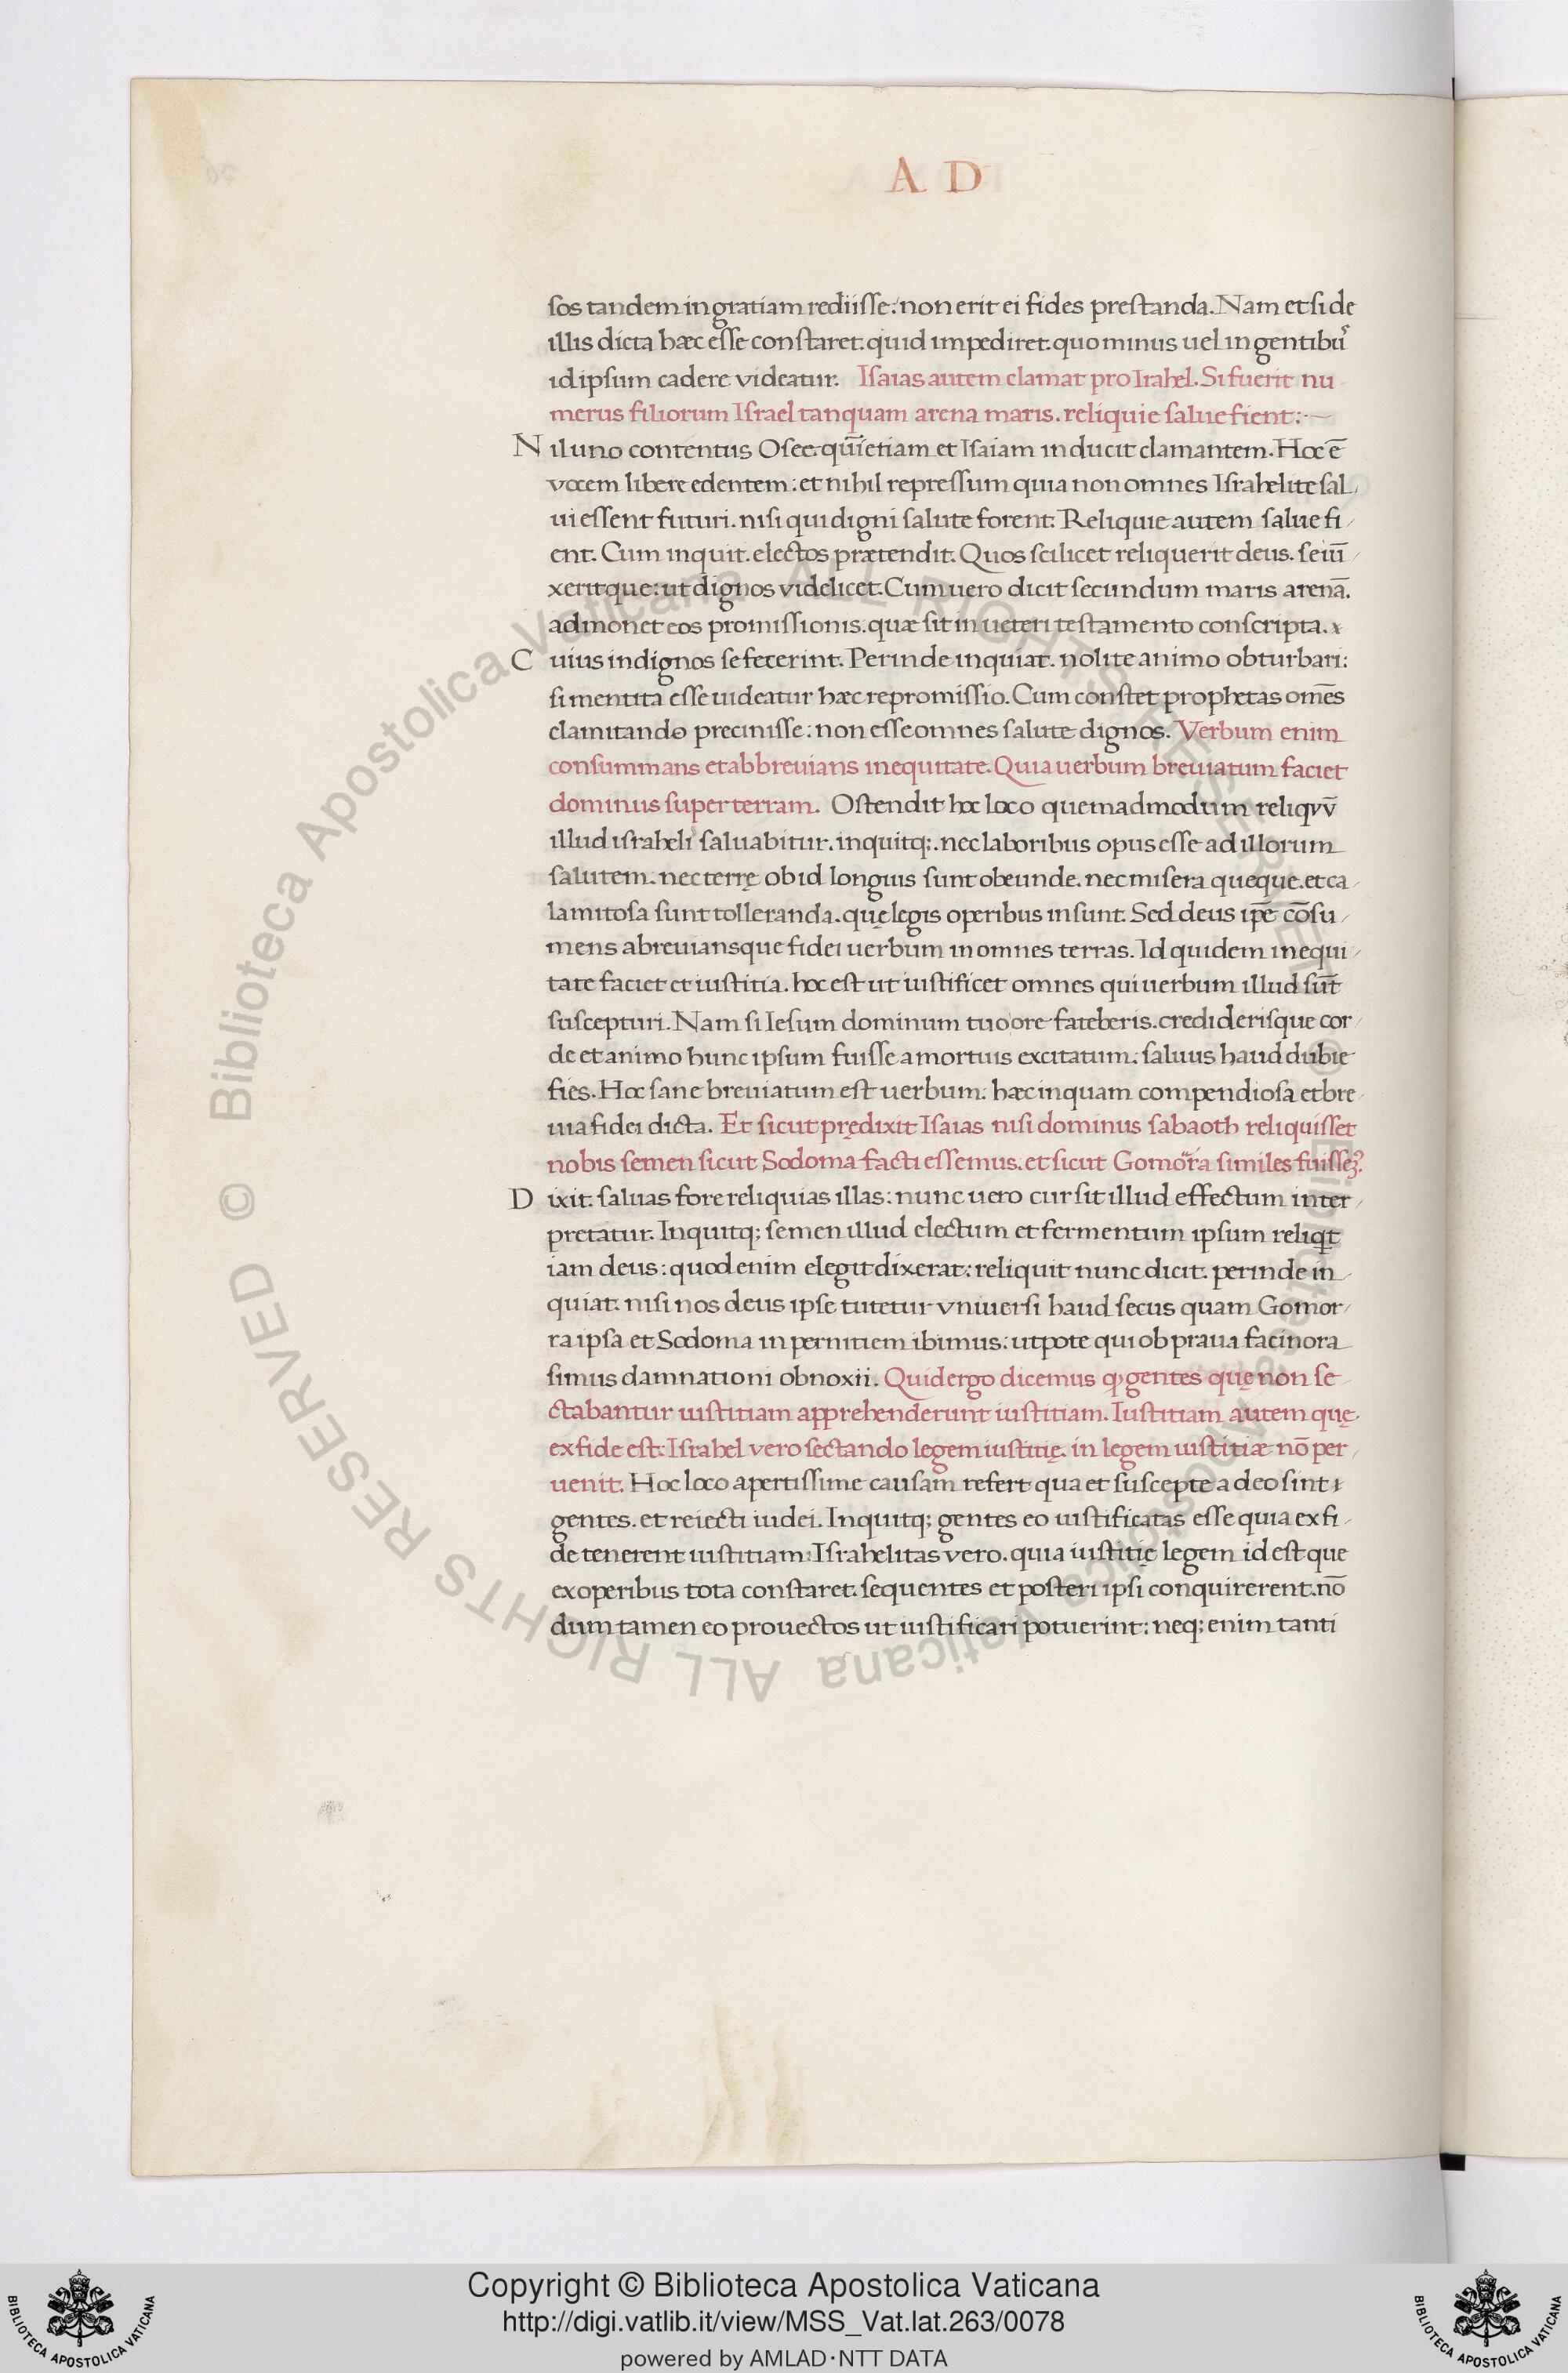 A D
sos tandem in gratiam rediisse: non erit ei fides prestanda. Nam et si de
illis dicta hæc esse constaret. quid impediret. quo minus uel in gentibꝰ
id ipsum cadere videatur. Isaias autem clamat pro Irahel. Si fuerit nu
merus filiorum Israel tanquam arena maris. reliquie salue fient:
Nil uno contentus Osee. etiam et Isaiam inducit clamantem. Hoc ē
vocem libere edentem: et nihil repressum quia non omnes Israhelite sal
ui essent futuri. nisi qui digni salute forent. Reliquie autem salue fi
ent. Cum inquit. electos prætendit. Quos scilicet reliquerit deus. seiū
xeritque: ut dignos videlicet. Cum uero dicit secundum maris arenā.
admonet eos promissionis. quæ sit in ueteri testamento conscripta.
Cuius indignos se fecerint. Perinde inquiat. nolite animo obturbari:
si mentita esse uideatur hæc repromissio. Cum constet prophetas omēs
clamitando precinisse: non esse omnes salute dignos. Verbum enim
consummans et abbreuians in equitate. Quia uerbum breuiatum faciet
dominus super terram. Ostendit hoc loco quemadmodum reliqvv̄
illud israheli saluabitur. inquitq;. nec laboribus opus esse ad illorum
salutem. nec terrę ob id longius sunt obeunde. nec misera queque. et ca
lamitosa sunt tolleranda. quę legis operibus insunt. Sed deus ip̄e cōsu
mens abreuiansque fidei uerbum in omnes terras. Id quidem in equi
tate faciet et iustitia. hoc est ut iustificet omnes qui uerbum illud sūt
suscepturi. Nam si Iesum dominum tuo ore fateberis. crediderisque cor
de et animo hunc ipsum fuisse a mortuis excitatum: saluus haud dubie
fies. Hoc sane breuiatum est uerbum: hæc inquam compendiosa et bre
uia fidei dicta. Et sicut prędixit Isaias nisi dominus sabaoth reliquisset
nobis semen sicut Sodoma facti essemus. et sicut Gomorra similes fuisseꝫꝰ.
Dixit. saluas fore reliquias illas: nunc uero cur sit illud effectum inter
pretatur. Inquitq; semen illud electum et fermentum ipsum reliq̄t
iam deus: quod enim elegit dixerat: reliquit nunc dicit. perinde in
quiat. nisi nos deus ipse tutetur vniuersi haud secus quam Gomor
ra ipsa et Sodoma in pernitiem ibimus: utpote qui ob praua facinora
simus damnationi obnoxii. Quid ergo dicemus ꝙ gentes quę non se
ctabantur iustitiam apprehenderunt iustitiam. Iustitiam autem quę
ex fide est: Israhel vero sectando legem iustitię. in legem iustitiæ nō per
uenit. Hoc loco apertissime causam refert qua et suscepte a deo sint
gentes. et reiecti iudei. Inquitq; gentes eo iustificatas esse quia ex fi
de tenerent iustitiam: Israhelitas vero. quia iustitię legem id est que
ex operibus tota constaret. sequentes et posteri ipsi conquirerent. nō
dum tamen eo prouectos ut iustificari potuerint: neq; enim tanti
© Biblioteca Apostolica Vaticana ALL RIGHTS RESERVED © Biblioteca Apostolica Vaticana ALL RIGHTS RESERVED
Copyright © Biblioteca Apostolica Vaticana
http://digi.vatlib.it/view/MSS_Vat.lat.263/0078
powered by AMLAD·NTT DATA
BIBLIOTECA APOSTOLICA VATICANA
BIBLIOTECA APOSTOLICA VATICANA